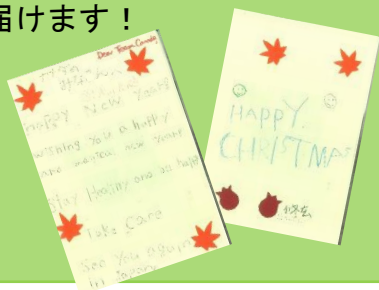 届けます！
Dear Team Canada
Happy New Year
Wishing You a happy
and magical new year
Stay Healthy and be happy
Take Care
See You again
in Japan
HAPPY
CHRISTMAS